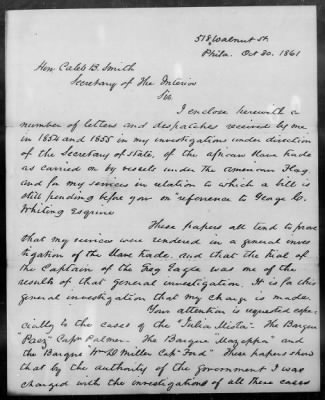 518 Walnut St.
Phila. Oct 30. 1861
Hon. Caleb B. Smith
Secretary of the Interior
Sir
I enclose herewith a
number of letters and despatches received by me
in 1854 and 1855 in my investigations under direction
of the Secretary of State, of the African slave trade
as carried on by vessels under the American Flag,
and for my services in relation to which a bill is
still pending before you on reference to George C.
Whiting Esquire
These papers all tend to prove
that my services were rendered in a general inves-
tigation of the Slave trade, and that the trial of
the Captain of the Eagle was one of the
results of that general investigation. It is for this
general investigation that my charge is made.
Your attention is requested espe-
cially to the cases of the "Julia Mista". The Barque
"Paez" Capn Palmer. The Barque "Mazeppa" and
the Barque "Wm D. Miller Capn Ford" These papers show
that by the authority of the Government I was
charged with the investigations of all these cases